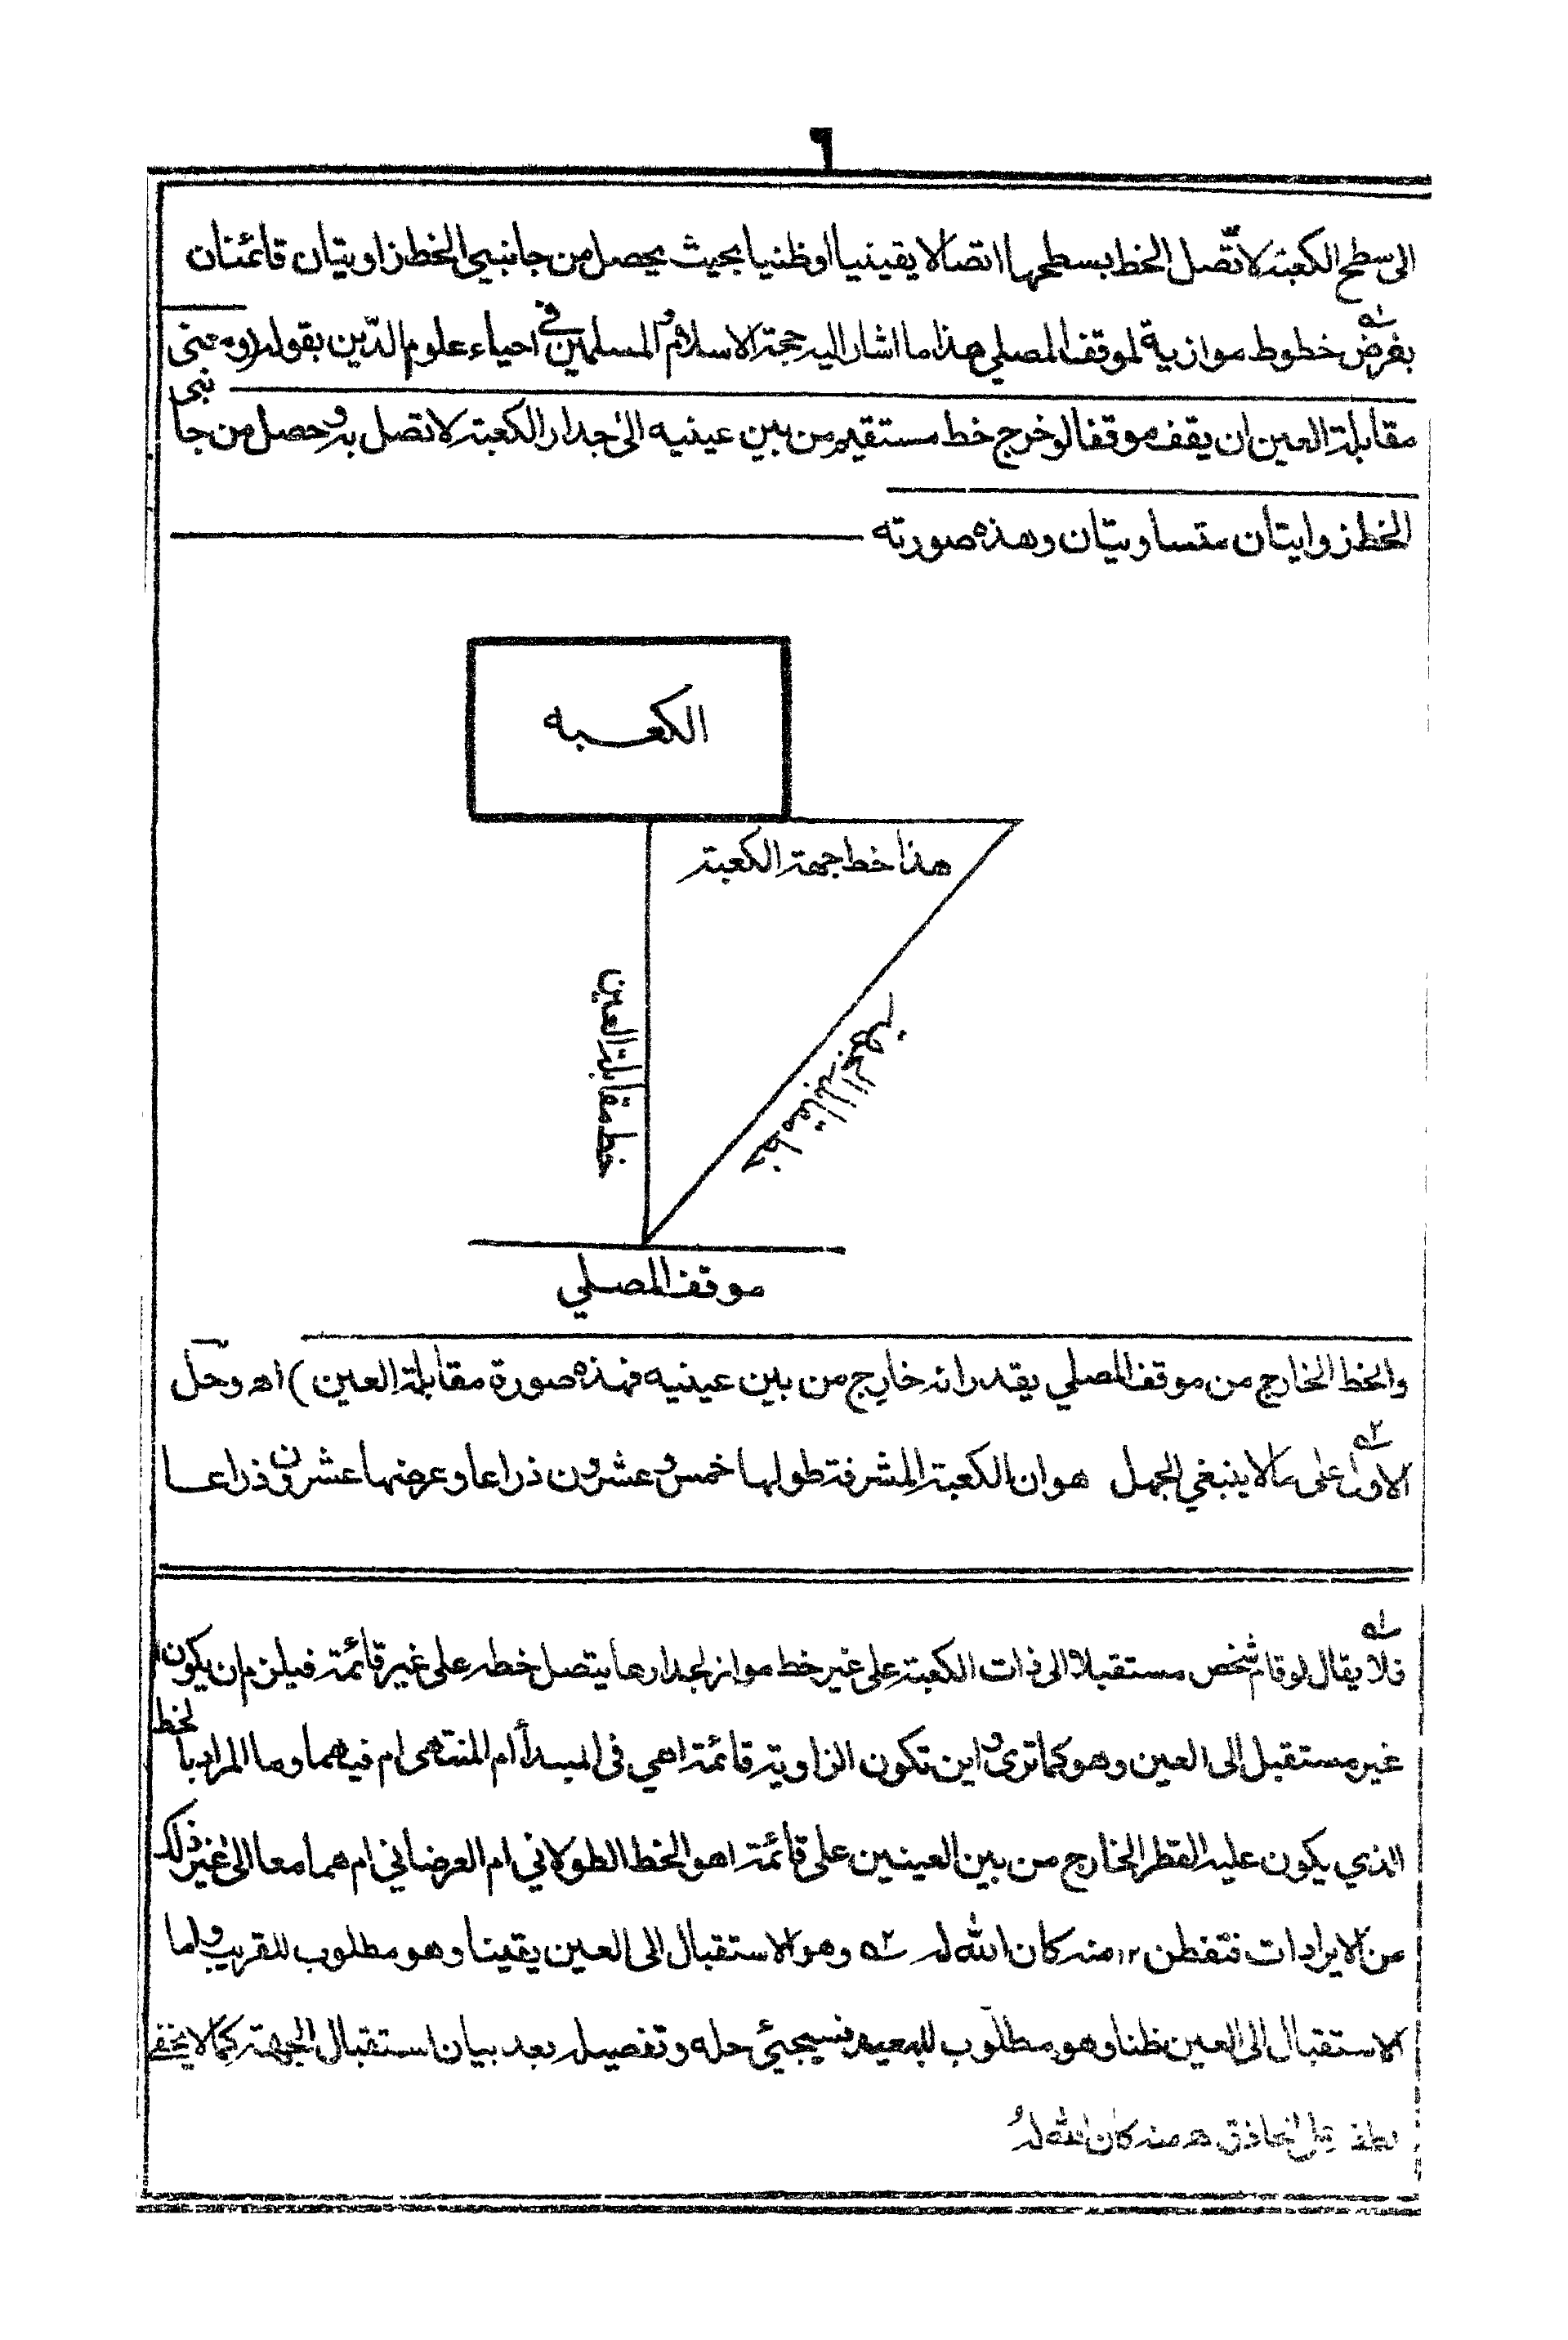 ٦
الى سطح الكعبة لاتّصل الخط بسطحها اتصالا يقينيا او ظنيا بحيث يحصل من جانبي الخط زاويتان قائمتان
بفرض ١ه خطوط موازية لموقف المصلي هذا ما اشار اليه حجة الاسلام والمسلمين في احياء علوم الدّين بقوله (ومعنى
مقابلة العين ان يقف موقفا لو خرج خط مستقيم من بين عينيه الى جدار الكعبة لاتصل به وحصل من جانبى
الخط زوايتان متساويتان وهذه صورته
الكعبه
هذا خط جهة الكعبة
خط مقابلة العين
خط مقابلة الجهة
موقف المصلي
والخط الخارج من موقف المصلي يقدر انه خارج من بين عينيه فهذه صورة مقابلة العين) اه وحل
الاول ٢ه على ما لا ينبغي الجمل هو ان الكعبة المشرفة طولها خمس وعشرون ذراعا وعرضها عشرون ذراعا
١ه فلا يقال لو قام شخص مستقبلا الى ذات الكعبة على غير خط مواز لجدارها يتصل خطه على غير قائمة فيلزم ان يكون
غير مستقبل الى العين وهو كما ترى و اين تكون الزاوية قائمة اهي فى المبدأ أم المنتهى ام فيهما وما المراد بالخط
الذي يكون عليه القطر الخارج من بين العينين على قائمة اهو الخط الطولاني ام العرضاني ام هما معا الى غير ذلك
من الايرادات فتفطن ١٢ منه كان الله له ٢ه وهو الاستقبال الى العين يقينا وهو مطلوب للقريب واما
الاستقبال الى العين ظنا وهو مطلوب للبعيد فسيجيئ حله وتفصيله بعد بيان استقبال الجهة كما لا يخفى
الحاذق ١٢ منه كان الله له